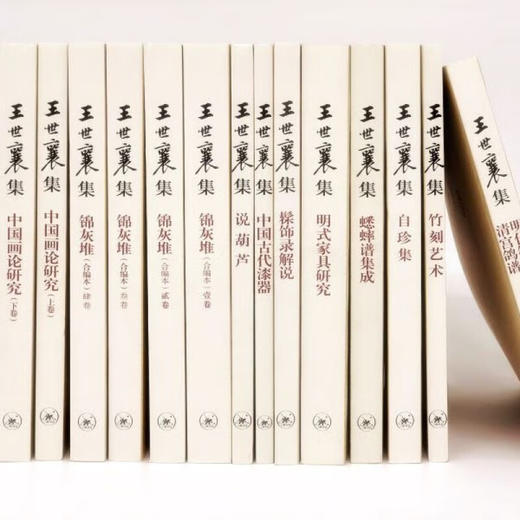 王世襄集
中国画论研究
（下卷）
王世襄集
中国画论研究
（上卷）
王世襄集
锦灰堆
（合编本）肆卷
王世襄集
锦灰堆
（合编本）叁卷
王世襄集
锦灰堆
（合编本）贰卷
王世襄集
锦灰堆
（合编本）壹卷
王世襄集
说葫芦
王世襄集
中国古代漆器
王世襄集
髹饰录解说
王世襄集
明式家具研究
王世襄集
蟋蟀谱集成
王世襄集
自珍集
王世襄集
竹刻艺术
王世襄集
明
清宫鸽谱